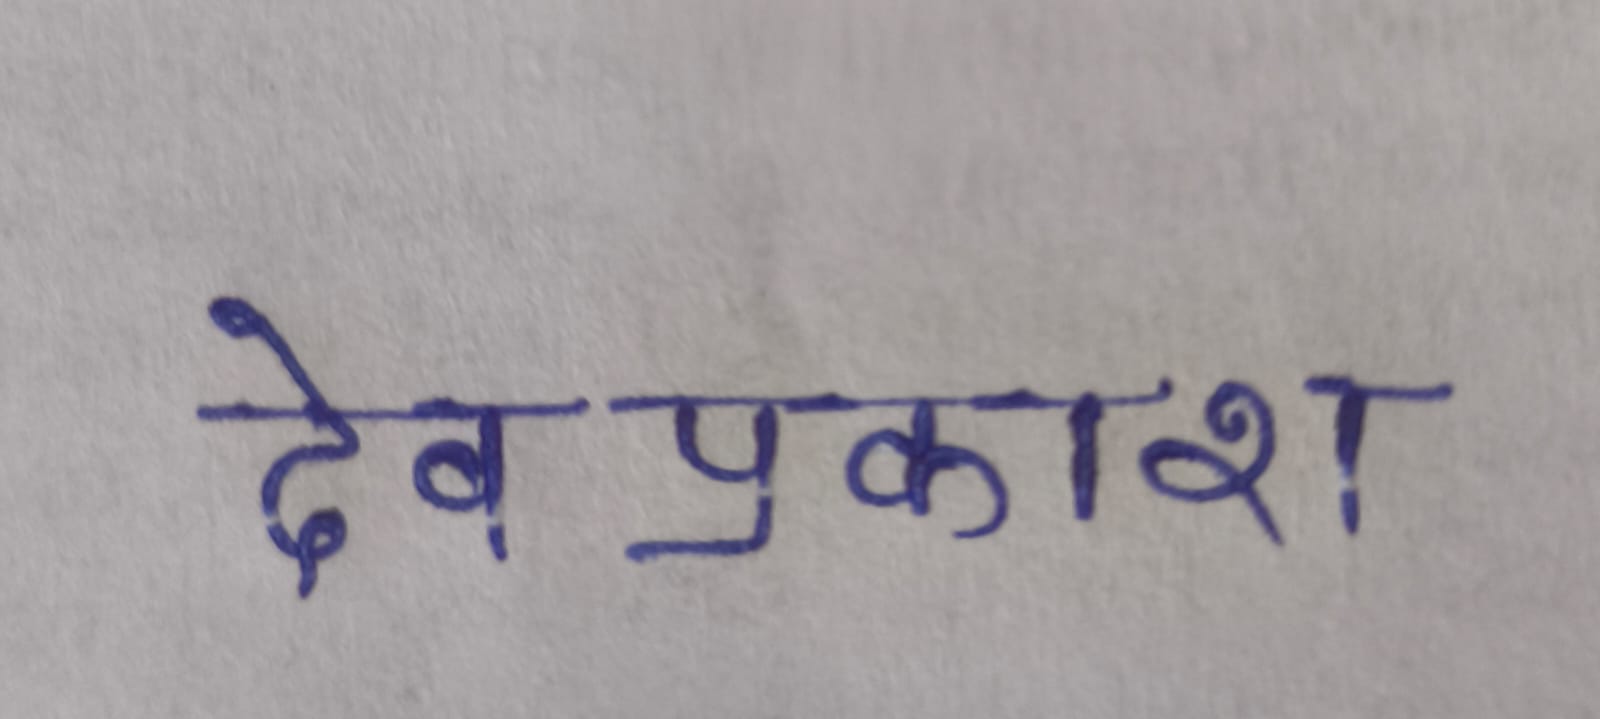 देव प्रकाश